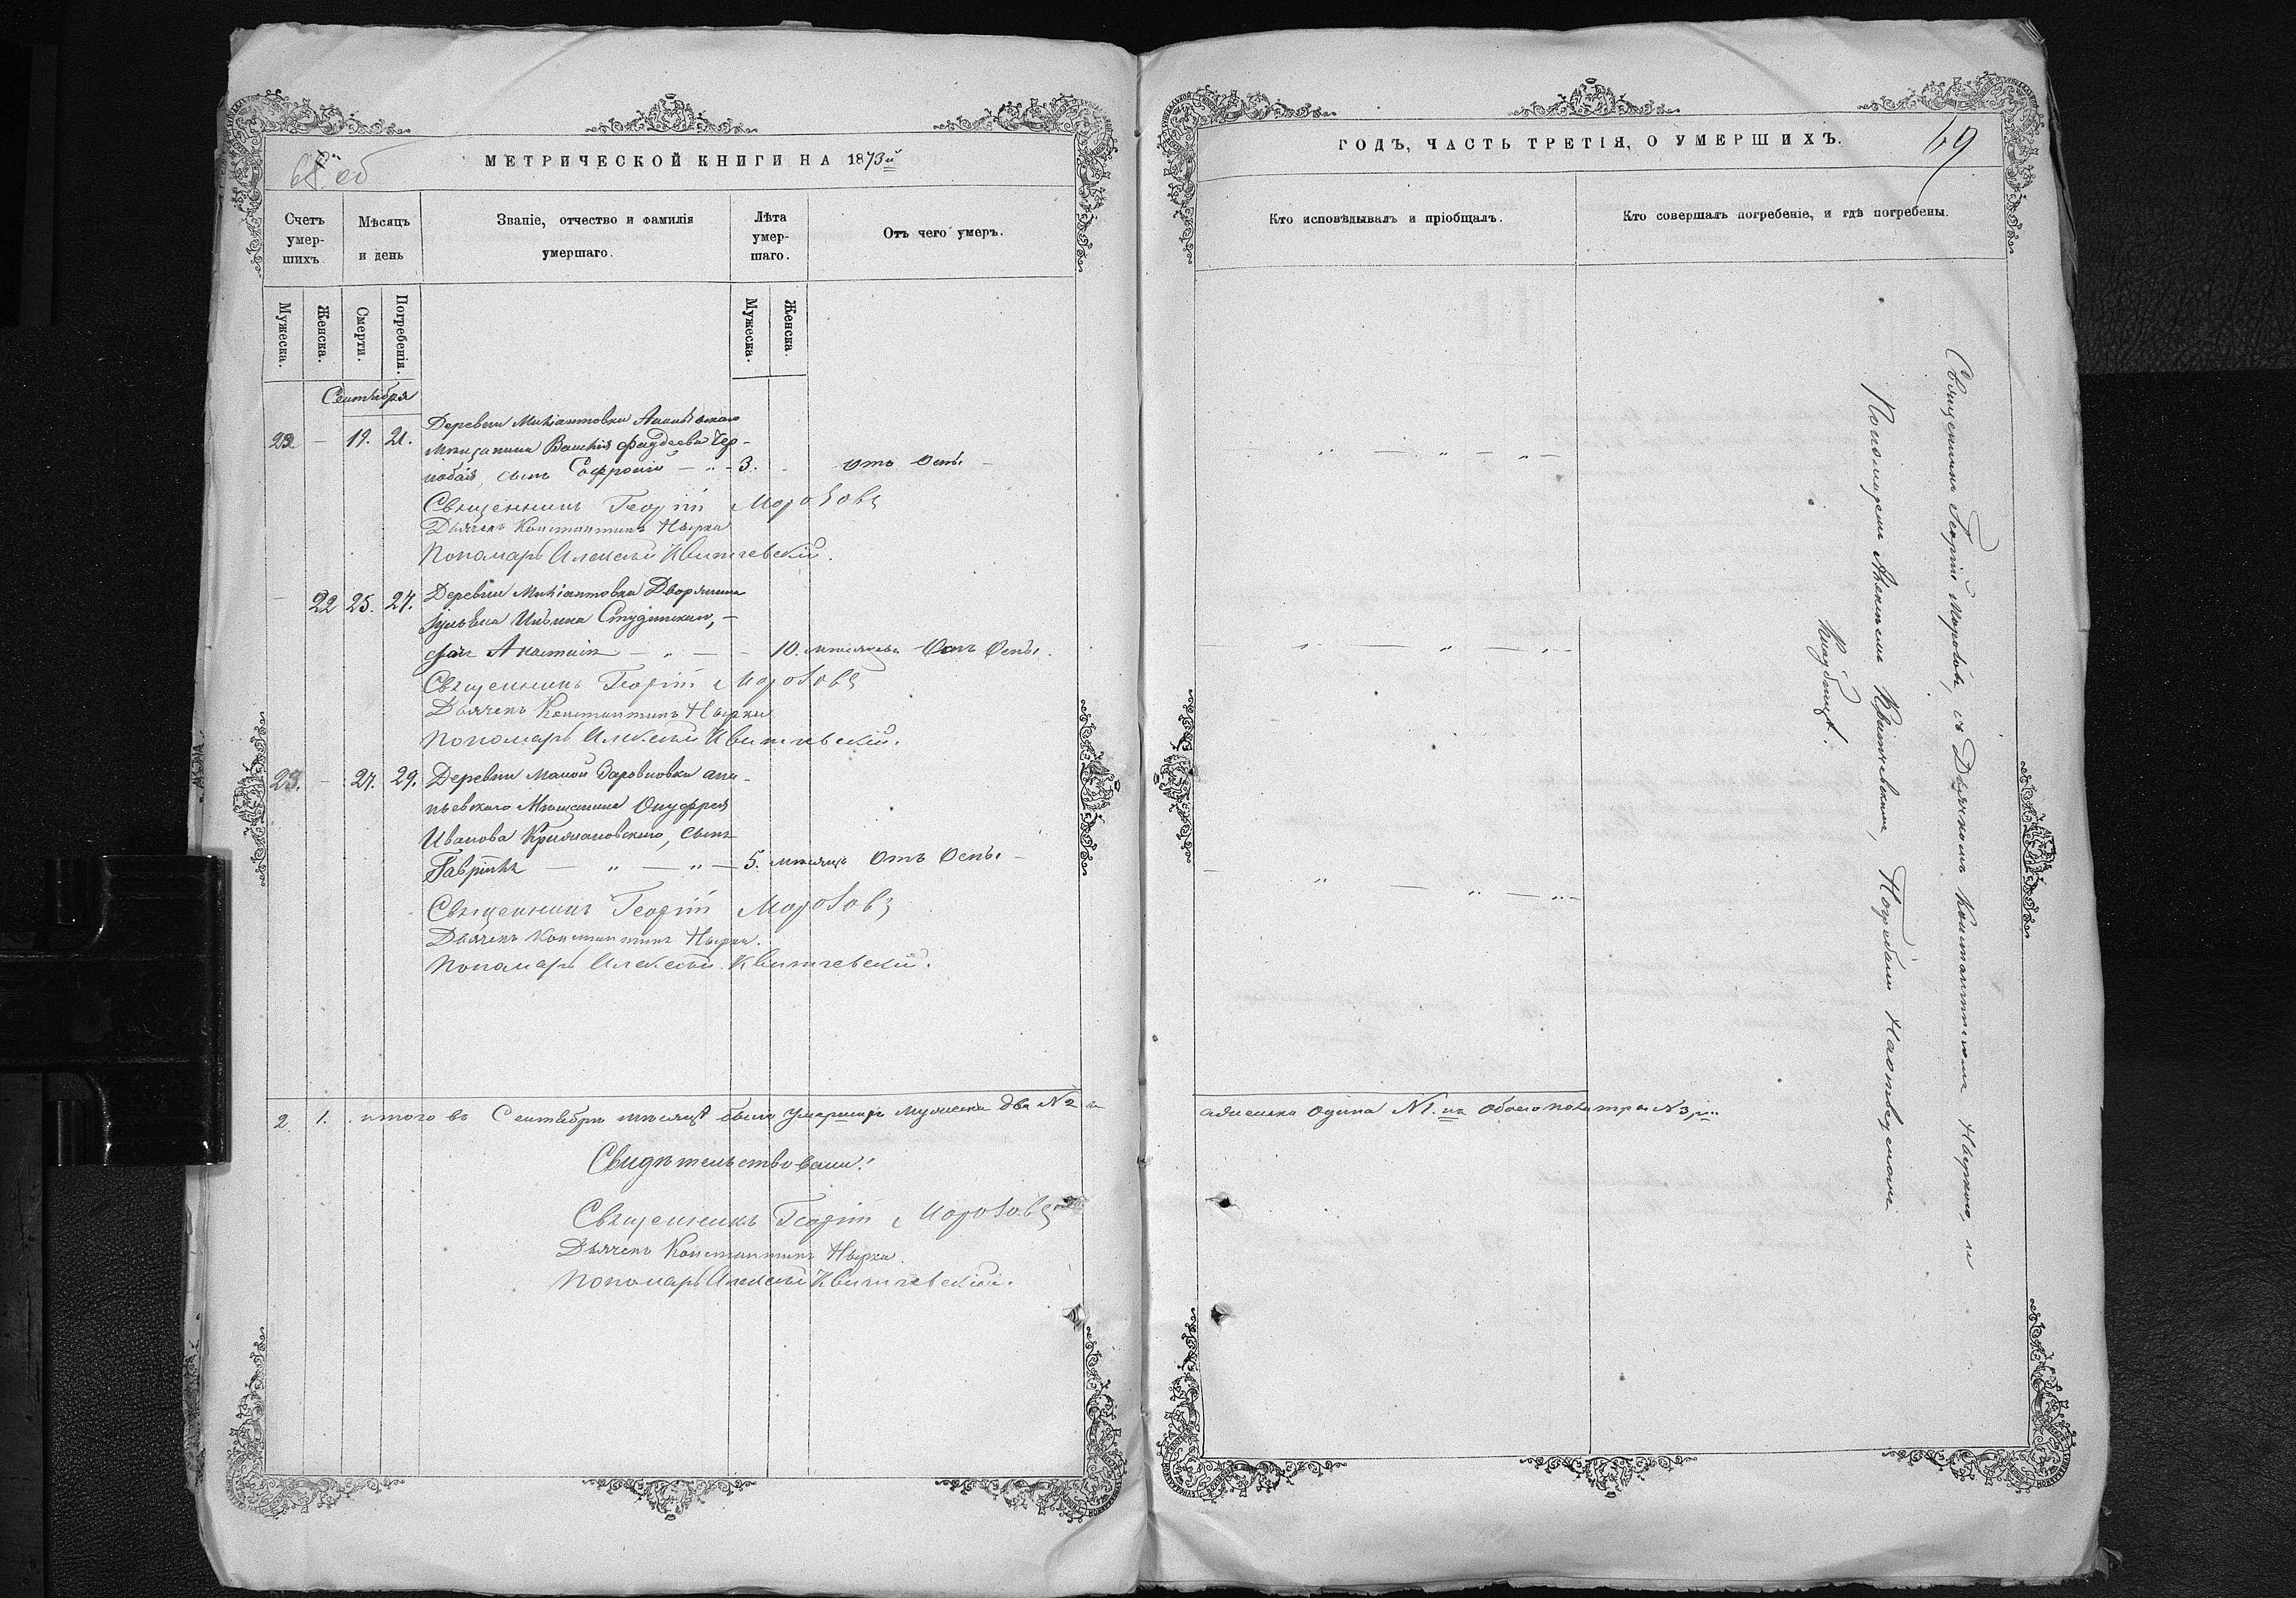 68 об
МЕТРИЧЕСКОЙ КНИГИ НА 1873й
Счетъ умер-шихъ.
Мѣсяцъ и день
Званіе, отчество и фамилія умершаго.
Лѣта умер-шаго.
Отъ чего умеръ.
Мужеска.
Женска.
Смерти.
Погребенія.
Мужеска.
Женска.
Сентября
22 – 19. 21. Деревни
мѣщанина Фаддеева Чер-
нобая, сынъ Софроній – „ – 3. - Отъ Оспы –
Священникъ Георгій Морозовъ
Дьячекъ Константинъ Нырко
Пономарь Алексѣй Квитчевскій.
– 22 25. 27. Деревни Дворянина
Студинскаго, –
дочь – „ – – 10. мѣсяцевъ Отъ Оспы.
Священникъ Георгій Морозовъ
Дьячекъ Константинъ Нырко
Пономарь Алексѣй Квитчевскій.
23. – 27. 29. Деревни Малой ана-
ньевскаго Мѣщанина Онуфрея
Иванова сынъ
Гавріилъ – „ – „ – 5. мѣсяцъ Отъ Оспы –
Священникъ Георгій Морозовъ
Дьячекъ Константинъ Нырко.
Пономарь Алексѣй Квитчевскій.
2. 1. итого въ Сентябрѣ мѣсяцѣ было умершихъ мужеска два №2 а
Свидѣтельствовали:
Священникъ Георгій Морозовъ
Дьячекъ Константинъ Нырко.
Пономарь Алексѣй Квитчевскій.
ГОДЪ, ЧАСТЬ ТРЕТІЯ, О УМЕРШИХЪ.
69
Кто исповѣдывалъ и пріобщалъ.
Кто совершалъ погребеніе, и гдѣ погребены.
Священникъ Георгій Морозовъ, съ Дьячкомъ Константиномъ Ныркою, и
Пономаремъ Алексѣемъ Квитчевскимъ, Погребали
Кладбищѣ.
а женска одина №1. обоего пола три №3